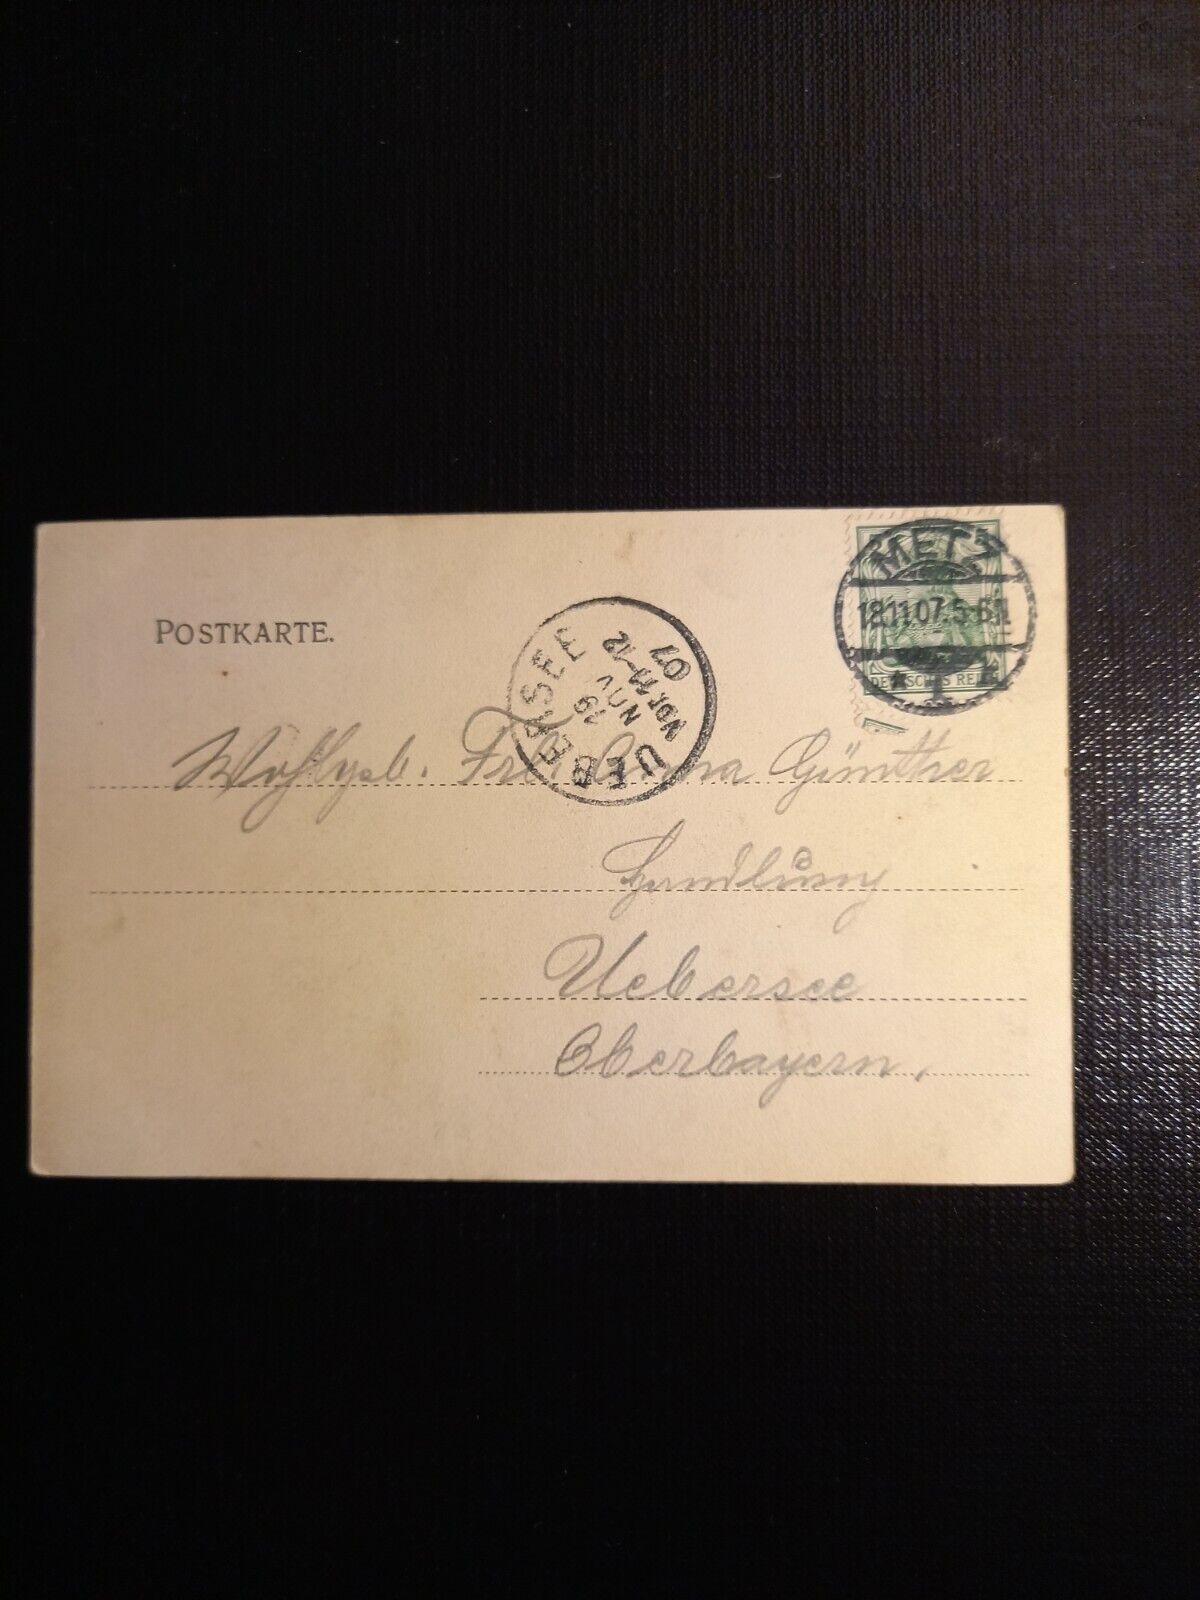 POSTKARTE.
METZ
18.11.07.5-6N
* 1 *
DEUTSCHES REICH
UEBERSEE
19
NOV
Vor.11-12
07
Wohlgeb. Frl. Günther
Handlung
Uebersee
Oberbayern.